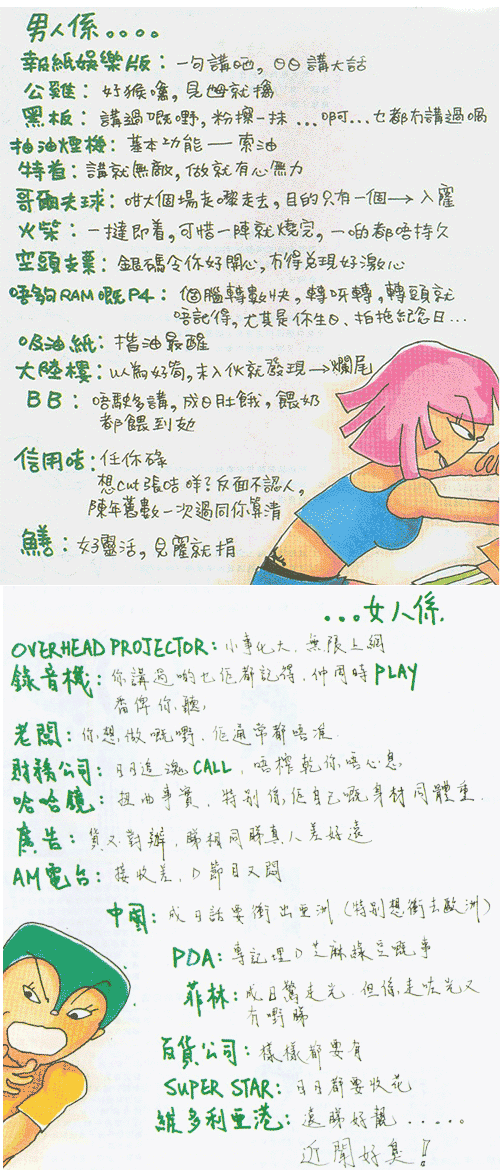 男人係。。。。
報紙娛樂版：一句講晒，日日講大話
公雞：好猴擒，見乸就擒
黑板：講過嘅嘢，粉擦一抹...啊...乜都冇講過喎
抽油煙機：基本功能——索油
特首：講就無敵，做就有心無力
哥爾夫球：咁大個場走嚟走去，目的只有一個→入窿
火柴：一撻即着，可惜一陣就燒完，一啲都唔持久
空頭支票：銀碼令你好開心，冇得兌現好激心
唔夠RAM嘅P4：個腦轉數快，轉呀轉，轉頭就
唔記得，尤其是你生日、拍拖紀念日...
吸油紙：揩油最醒
大陸樓：以為好筍，未入伙就發現→爛尾
BB：唔駛多講，成日肚餓，餵奶
都餵到攰
信用咭：任你碌
想cut張咭咩？反面不認人，
陳年舊數一次過同你算清
鱔：好靈活，見窿就捐
...女人係
OVERHEAD PROJECTOR：小事化大，無限上綱
錄音機：你講過啲乜佢都記得，仲同時PLAY
番俾你聽
老闆：你想做嘅嘢，佢通常都唔准
財務公司：日日追魂CALL，唔榨乾你唔心息
哈哈鏡：扭曲事實，特別係佢自己嘅身材同體重
廣告：貨不對辦，睇相同睇真人差好遠
AM電台：接收差，D節目又悶
中國：成日話要衝出亞洲（特別想衝去歐洲）
PDA：專記埋D芝麻綠豆嘅事
菲林：成日驚走光，但係走咗光又
冇嘢睇
百貨公司：樣樣都要有
SUPER STAR：日日都要收花
維多利亞港：遠睇好靚......
近聞好臭！